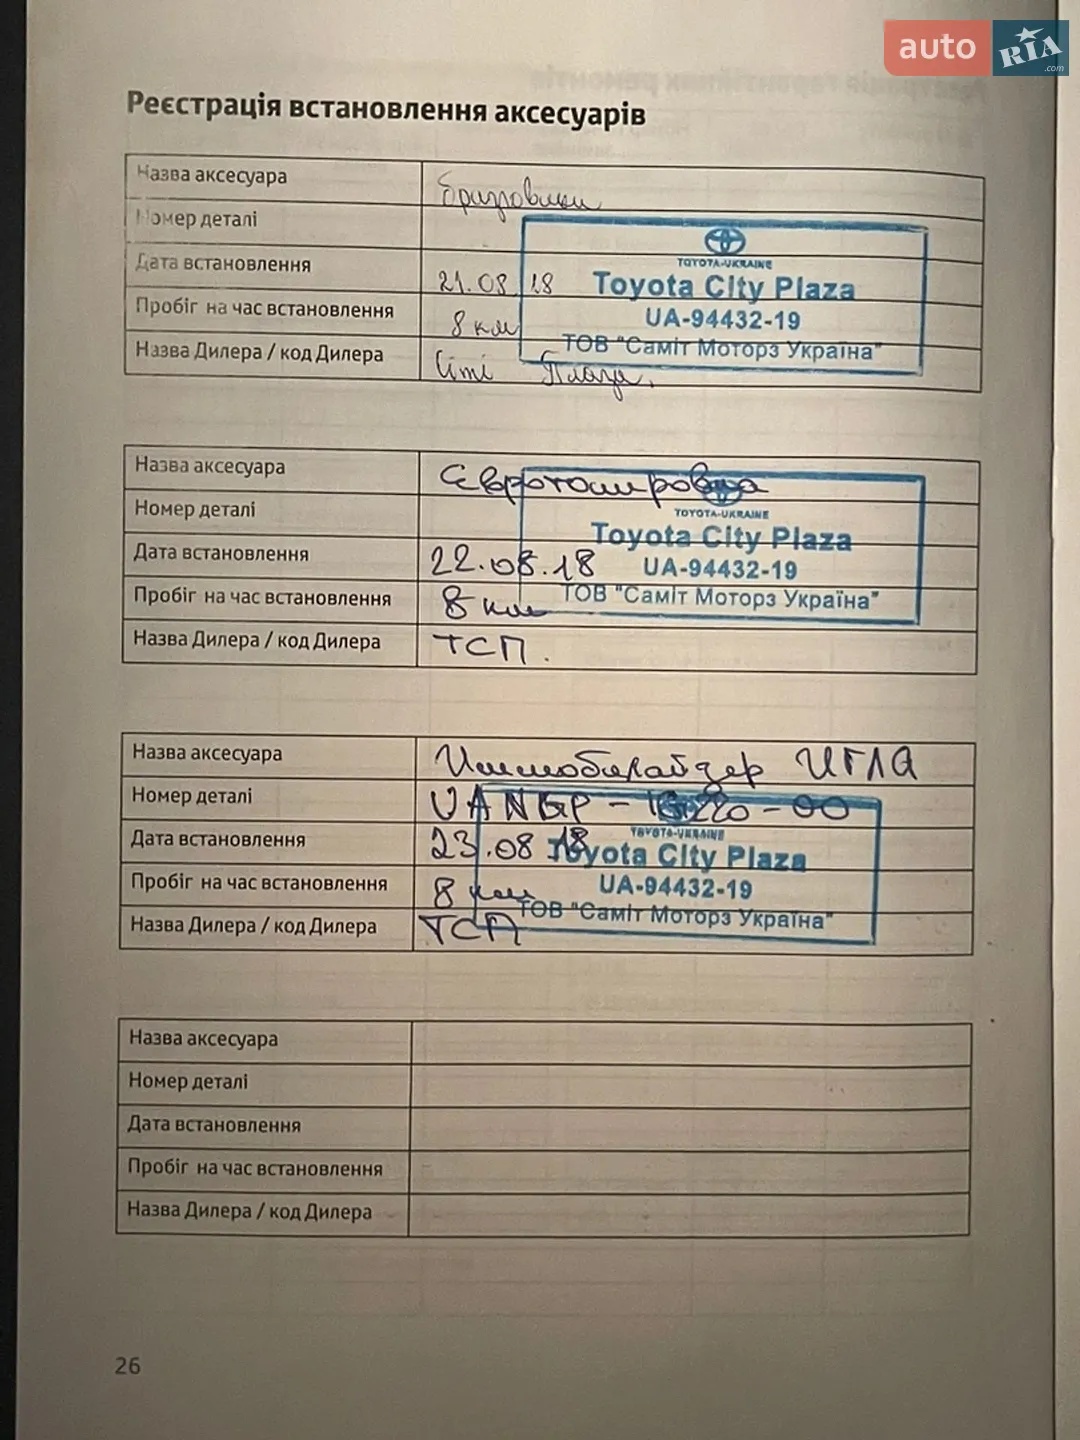 auto RIA .com
Реєстрація встановлення аксесуарів
Назва аксесуара Бризговики
Номер деталі
Дата встановлення 21.08 18
Пробіг на час встановлення 8 км
Назва Дилера / код Дилера Сіті Плаза.
TOYOTA-UKRAINE
Toyota City Plaza
UA-94432-19
ТОВ "Саміт Моторз Україна"
Назва аксесуара
Номер деталі
Дата встановлення 22.08.18
Пробіг на час встановлення 8 км
Назва Дилера / код Дилера ТСП.
TOYOTA-UKRAINE
Toyota City Plaza
UA-94432-19
ТОВ "Саміт Моторз Україна"
Назва аксесуара Иммобилайзер ИГЛА
Номер деталі
Дата встановлення 23.08 18
Пробіг на час встановлення 8 км
Назва Дилера / код Дилера ТСП
TOYOTA-UKRAINE
Toyota City Plaza
UA-94432-19
ТОВ "Саміт Моторз Україна"
Назва аксесуара
Номер деталі
Дата встановлення
Пробіг на час встановлення
Назва Дилера / код Дилера
26